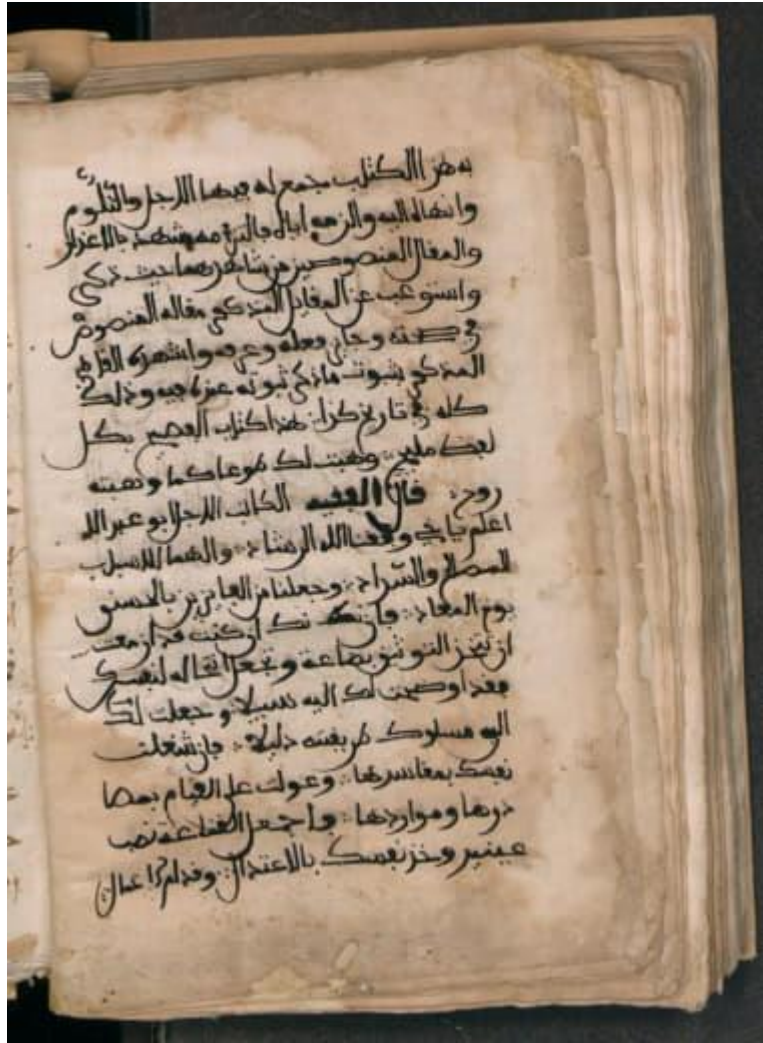 به هذا الكتاب مجمع له فيها الاجل والتلوم
وانهاه اليه والزمه اياه بالتزامه
والمقال المنصوصين من شاهدهما حيث ذكر
واستوعب عن المقابل المذكور مقاله المنصوص
في صحته وجايز فعله وعرفه واشهده القاضي
المذكور بثبوت ما ذكر ثبوته عنده فيه وذلك
كله في تاريخ كذا هذا كتاب الفصيح بكل
لفظ مليح وهبت لك طوعا كما وهبته
روح قال الفقيه الكاتب الاجل ابو عبد الله
اعلم ياخي وفقنا الله الرشاد والهمنا لاسباب
الصلاح والسداد وجعلنا من الفايزين بالحسنى
يوم المعاد فان كنت قد ازمعت
ان تتخذ التوثيق بضاعة وتجعل انتحاله لنفسك
فقد اوضحت لك اليه سبيلا وجعلت لك
الى مسلوك طريقته دليلا فان شغلت
نفسك بمقاسدها وعولت على القيام بمصا
درها ومواردها فاجعل القناعة نصب
عينيك وخذ نفسك بالاعتدال وقدام